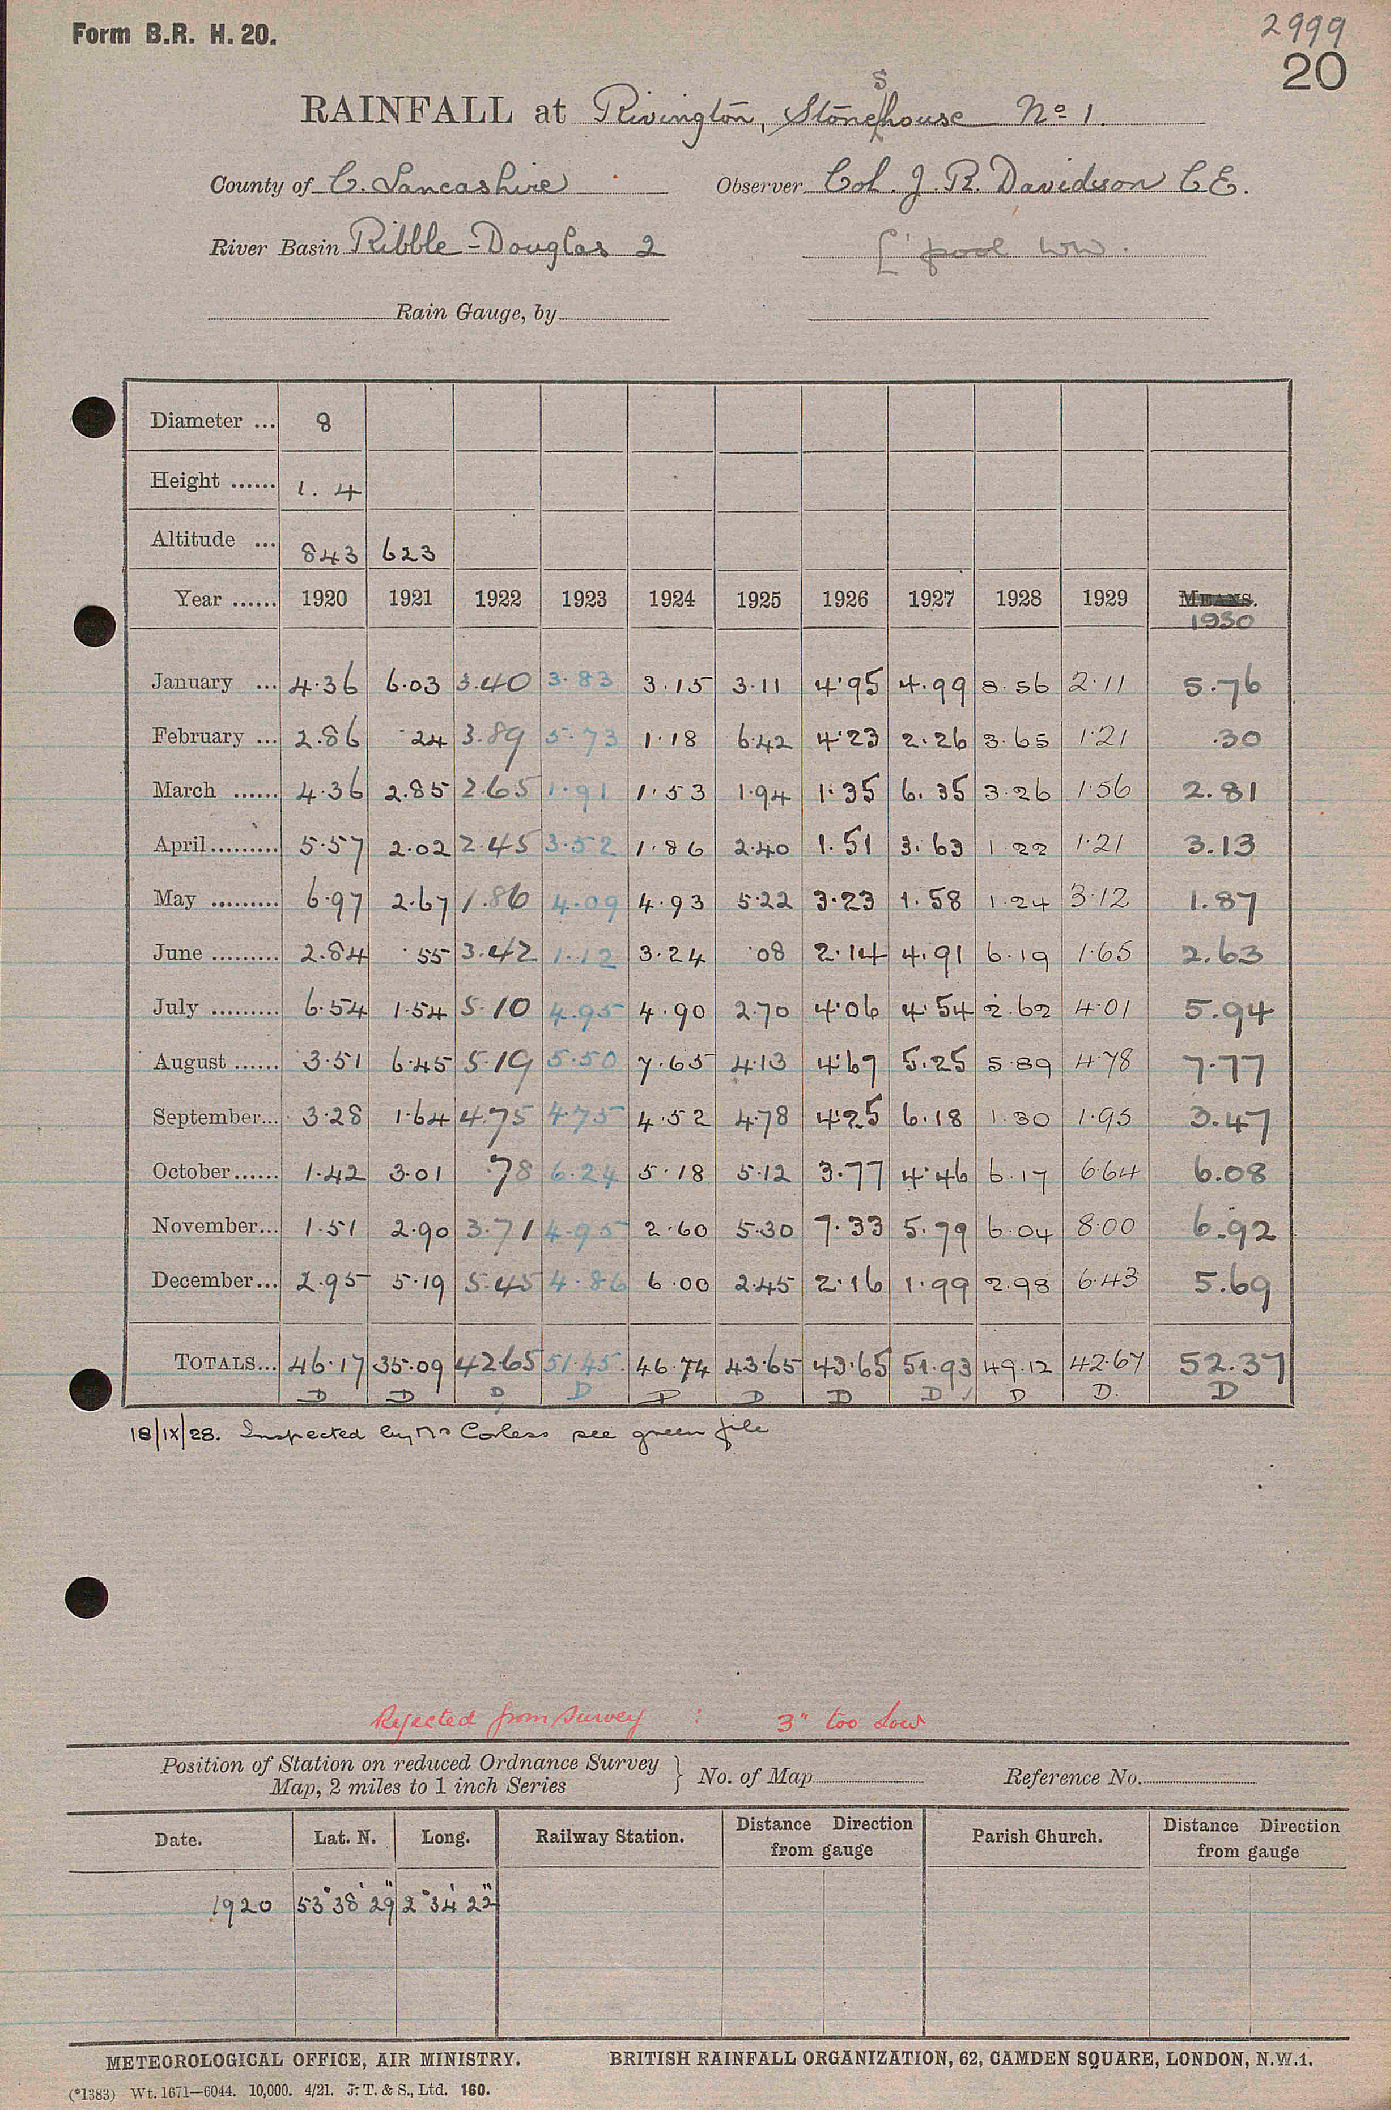 Form B.R. H. 20.
2999
20
RAINFALL at Rivington, Stone s house No 1.
County of C. Lancashire Observer Col. J. R. Davidson C.E.
River Basin Ribble - Douglas 2 L'pool WW.
Rain Gauge, by
Diameter ... 8
Height ...... 1. 4
Altitude ... 843 623
Year ...... 1920 1921 1922 1923 1924 1925 1926 1927 1928 1929 MEANS.
1930
January ... 4.36 6.03 3.40 3.83 3.15 3.11 4.95 4.99 8.56 2.11 5.76
February ... 2.86 .24 3.89 5.73 1.18 6.42 4.23 2.26 3.65 1.21 .30
March ...... 4.36 2.85 2.65 1.91 1.53 1.94 1.35 6.35 3.26 1.56 2.81
April ......... 5.57 2.02 2.45 3.52 1.86 2.40 1.51 3.63 1.22 1.21 3.13
May ......... 6.97 2.67 1.86 4.09 4.93 5.22 3.23 1.58 1.24 3.12 1.87
June ......... 2.84 .55 3.42 1.12 3.24 .08 2.14 4.91 6.19 1.65 2.63
July ......... 6.54 1.54 5.10 4.95 4.90 2.70 4.06 4.54 2.62 4.01 5.94
August ...... 3.51 6.45 5.19 5.50 7.65 4.13 4.67 5.25 5.89 4.78 7.77
September... 3.28 1.64 4.75 4.75 4.52 4.78 4.25 6.18 1.30 1.95 3.47
October...... 1.42 3.01 .78 6.24 5.18 5.12 3.77 4.46 6.17 6.64 6.08
November... 1.51 2.90 3.71 4.95 2.60 5.30 7.33 5.79 6.04 8.00 6.92
December... 2.95 5.19 5.45 4.86 6.00 2.45 2.16 1.99 2.98 6.43 5.69
TOTALS... 46.17 35.09 42.65 51.45 46.74 43.65 43.65 51.93 49.12 42.67 52.37
D D D D D D D D D D. D
18/IX/28. Inspected by Mr Corless see green file
Rejected from Survey : 3" too low
Position of Station on reduced Ordnance Survey
Map, 2 miles to 1 inch Series } No. of Map Reference No.
Date. Lat. N. Long. Railway Station. Distance Direction from gauge Parish Church. Distance Direction from gauge
1920 53° 38' 29" 2° 34' 22"
METEOROLOGICAL OFFICE, AIR MINISTRY. BRITISH RAINFALL ORGANIZATION, 62, CAMDEN SQUARE, LONDON, N.W.1.
(*1383) Wt. 1671—6044. 10,000. 4/21. J. T. & S., Ltd. 160.